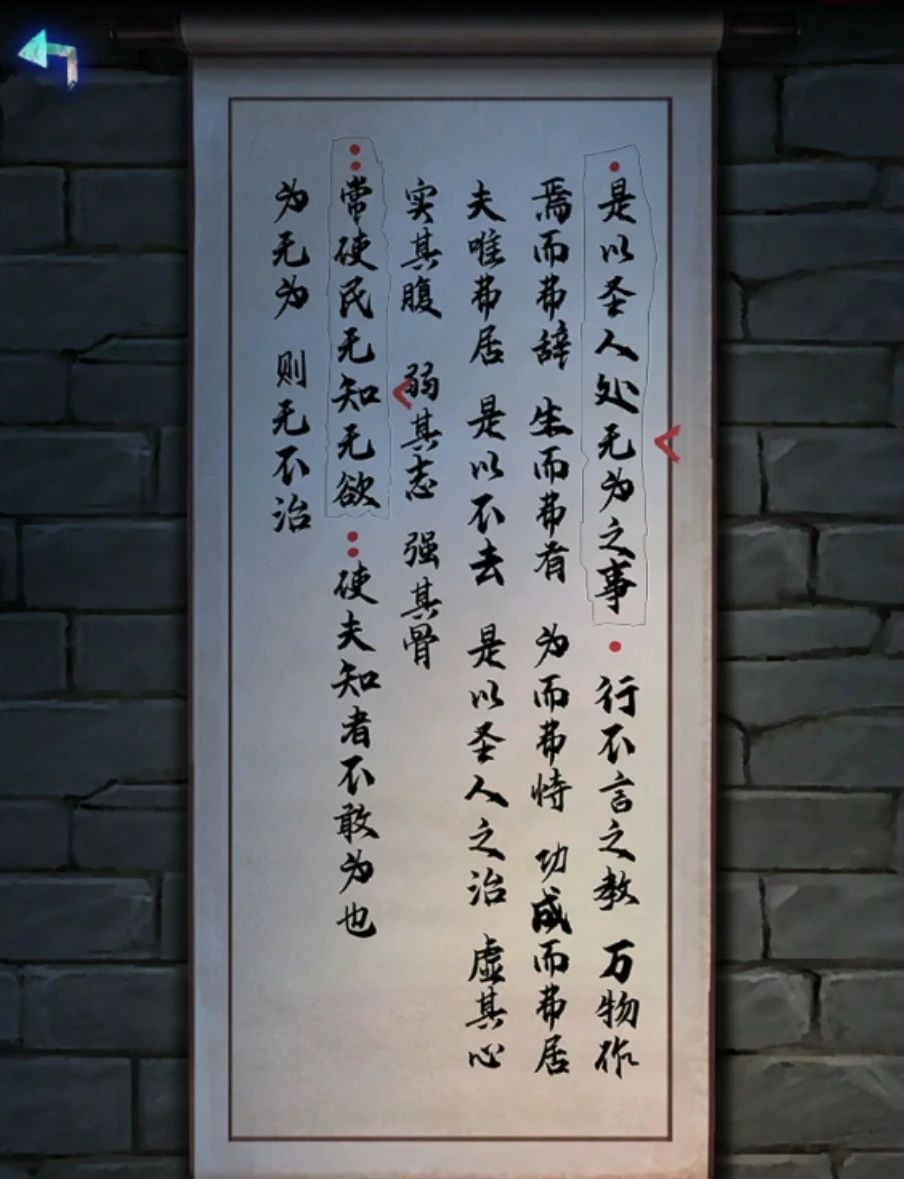 是以圣人处无为之事 行不言之教 万物作
焉而弗辞 生而弗有 为而弗恃 功成而弗居
夫唯弗居 是以不去 是以圣人之治 虚其心
实其腹 弱其志 强其骨
常使民无知无欲 使夫知者不敢为也
为无为 则无不治